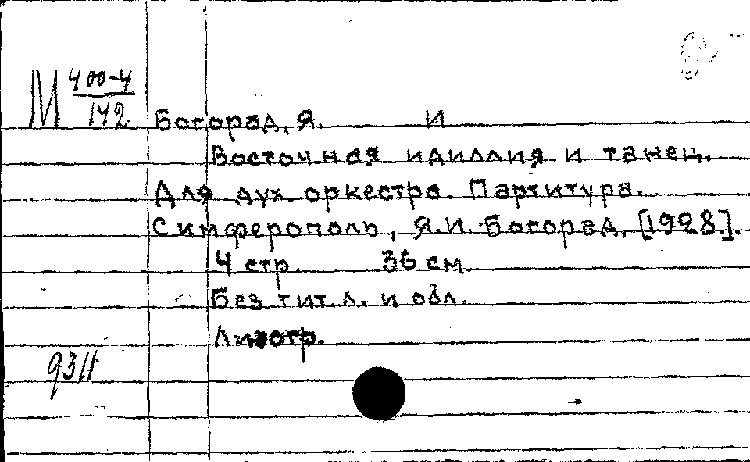 М 400-4
142
Богорад, Я. И
Восточная идиллия и танец.
Для дух. оркестра. Партитура.
Симферополь, Я.И. Богорад, [1928].
4 стр. 36 см.
Без тит. л. и обл.
Литогр.
9311